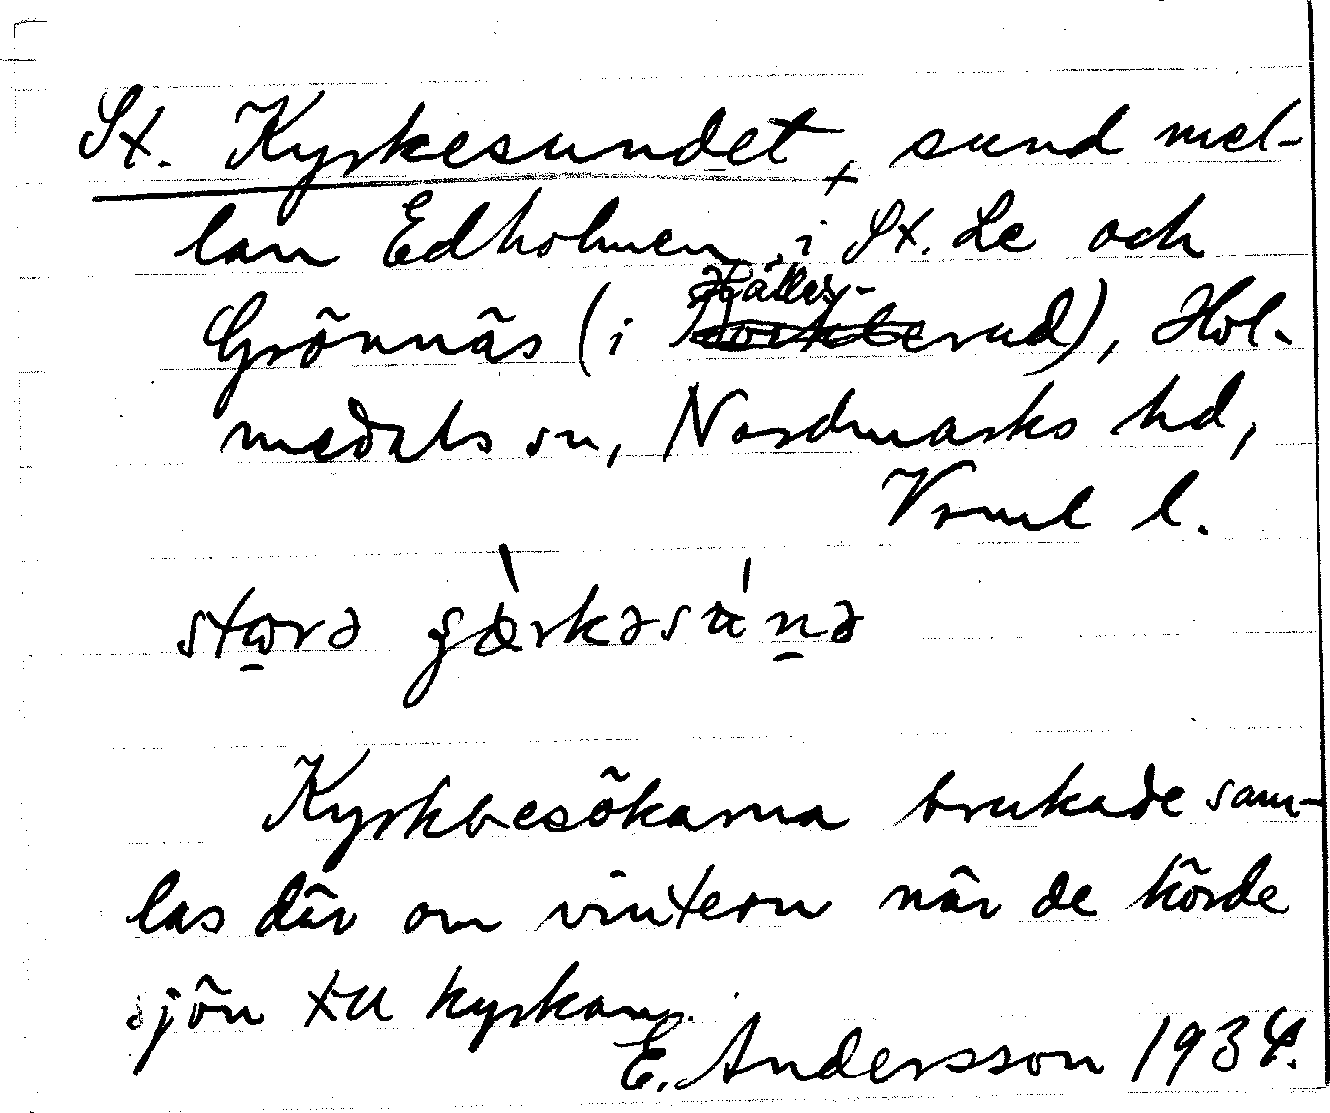 St. Kyrkesundet, sund mel-
lan Edholmen i St. Le och
Grönnäs (i Hälle-
rud), Hol-
medals sn, Nordmarks hd,
Vrml l.
Kyrkbesökarna brukade sam-
las där om vintern när de körde
sjön till kyrkan.
E. Andersson 1934.